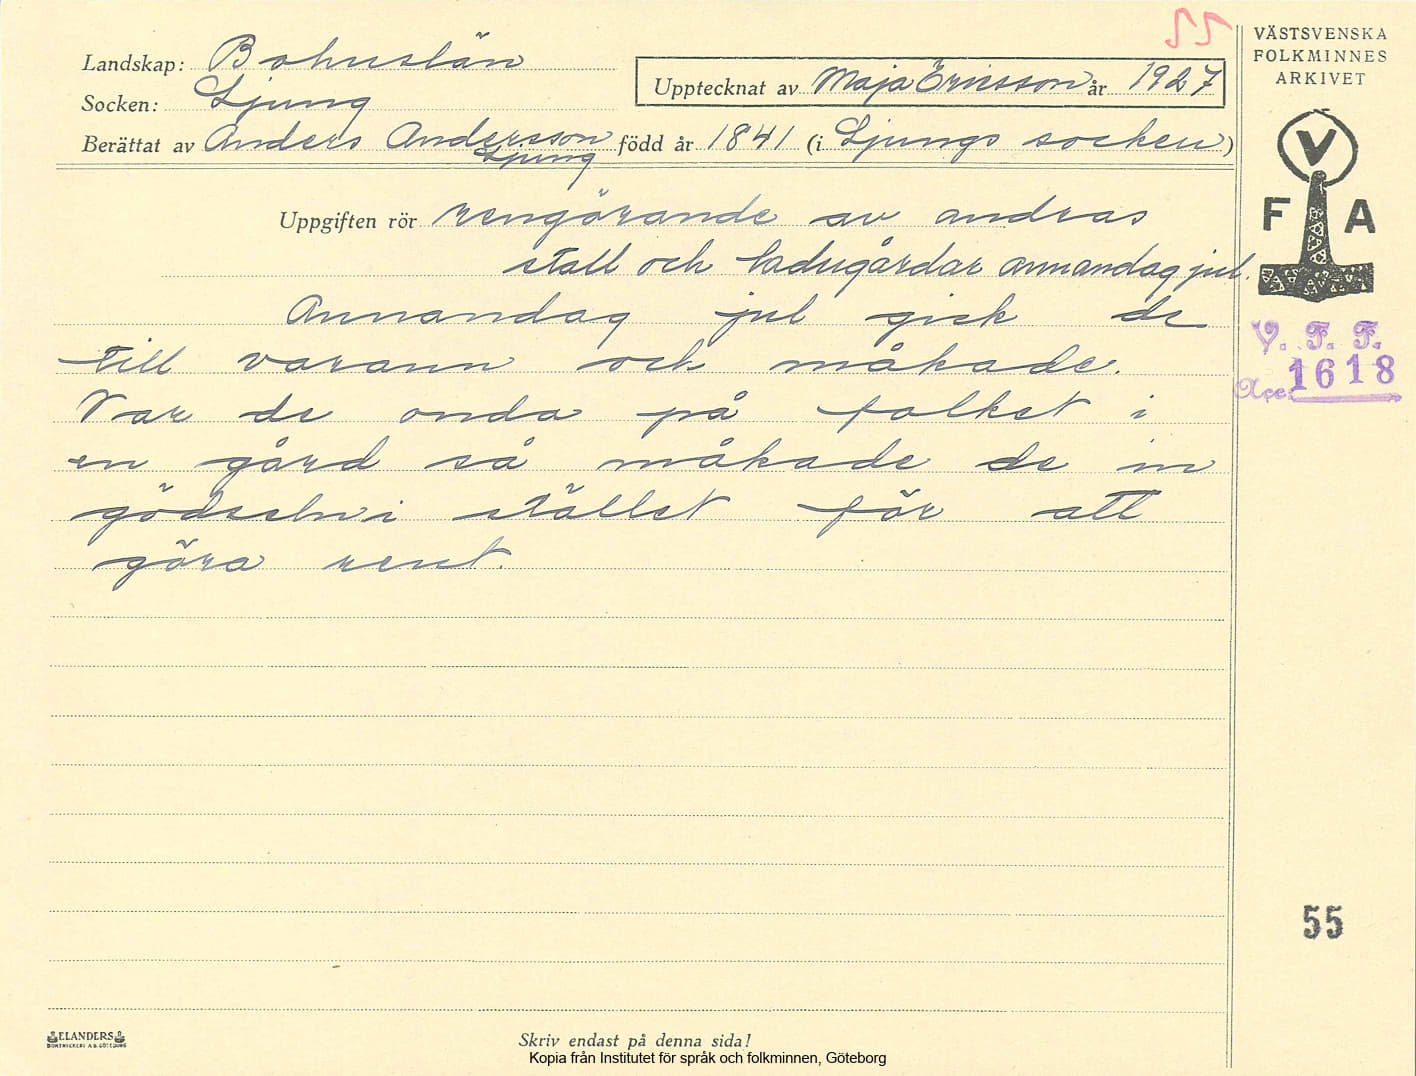 55
VÄSTSVENSKA
FOLKMINNES
ARKIVET
Landskap: Bohuslän
Socken: Ljung
Upptecknat av Maja Ericsson år 1927
Berättat av Anders Andersson född år 1841 (i Ljungs socken)
Ljung
V
F A
Uppgiften rör rengörande av andras
stall och ladugårdar annandag jul.
Annandag jul gick de
till varann och måkade.
Var de onda på folket i
en gård så måkade de in
gödseln i stället för att
göra rent.
V. F. F.
Acc. 1618
55
ELANDERS
BOKTRYCKERI A.B. GÖTEBORG
Skriv endast på denna sida!
Kopia från Institutet för språk och folkminnen, Göteborg